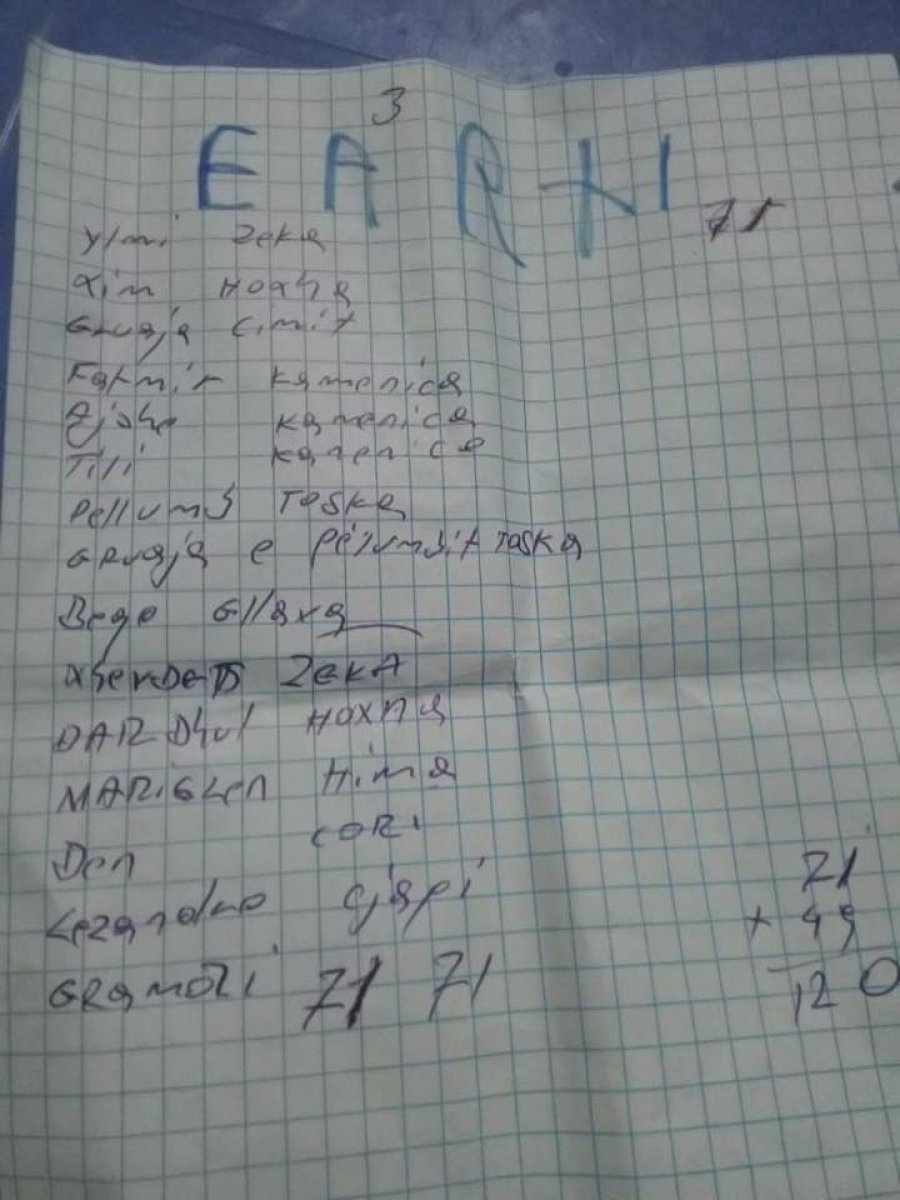 3
EARXI
71
Ylmi Zeka
Xim Hoxha
Gruaja Cimit
Fatmir Kamenica
Kamenica
Tili Kamenica
Pellumb Toska
Gruaja e Pelumbit Toska
Bege Gllava
Skender Zeka
DARDhul HOXHa
MARiGLen Hima
Den CORI
Lezandro Gjapi
GRamoZi 71 71
71
+ 49
120